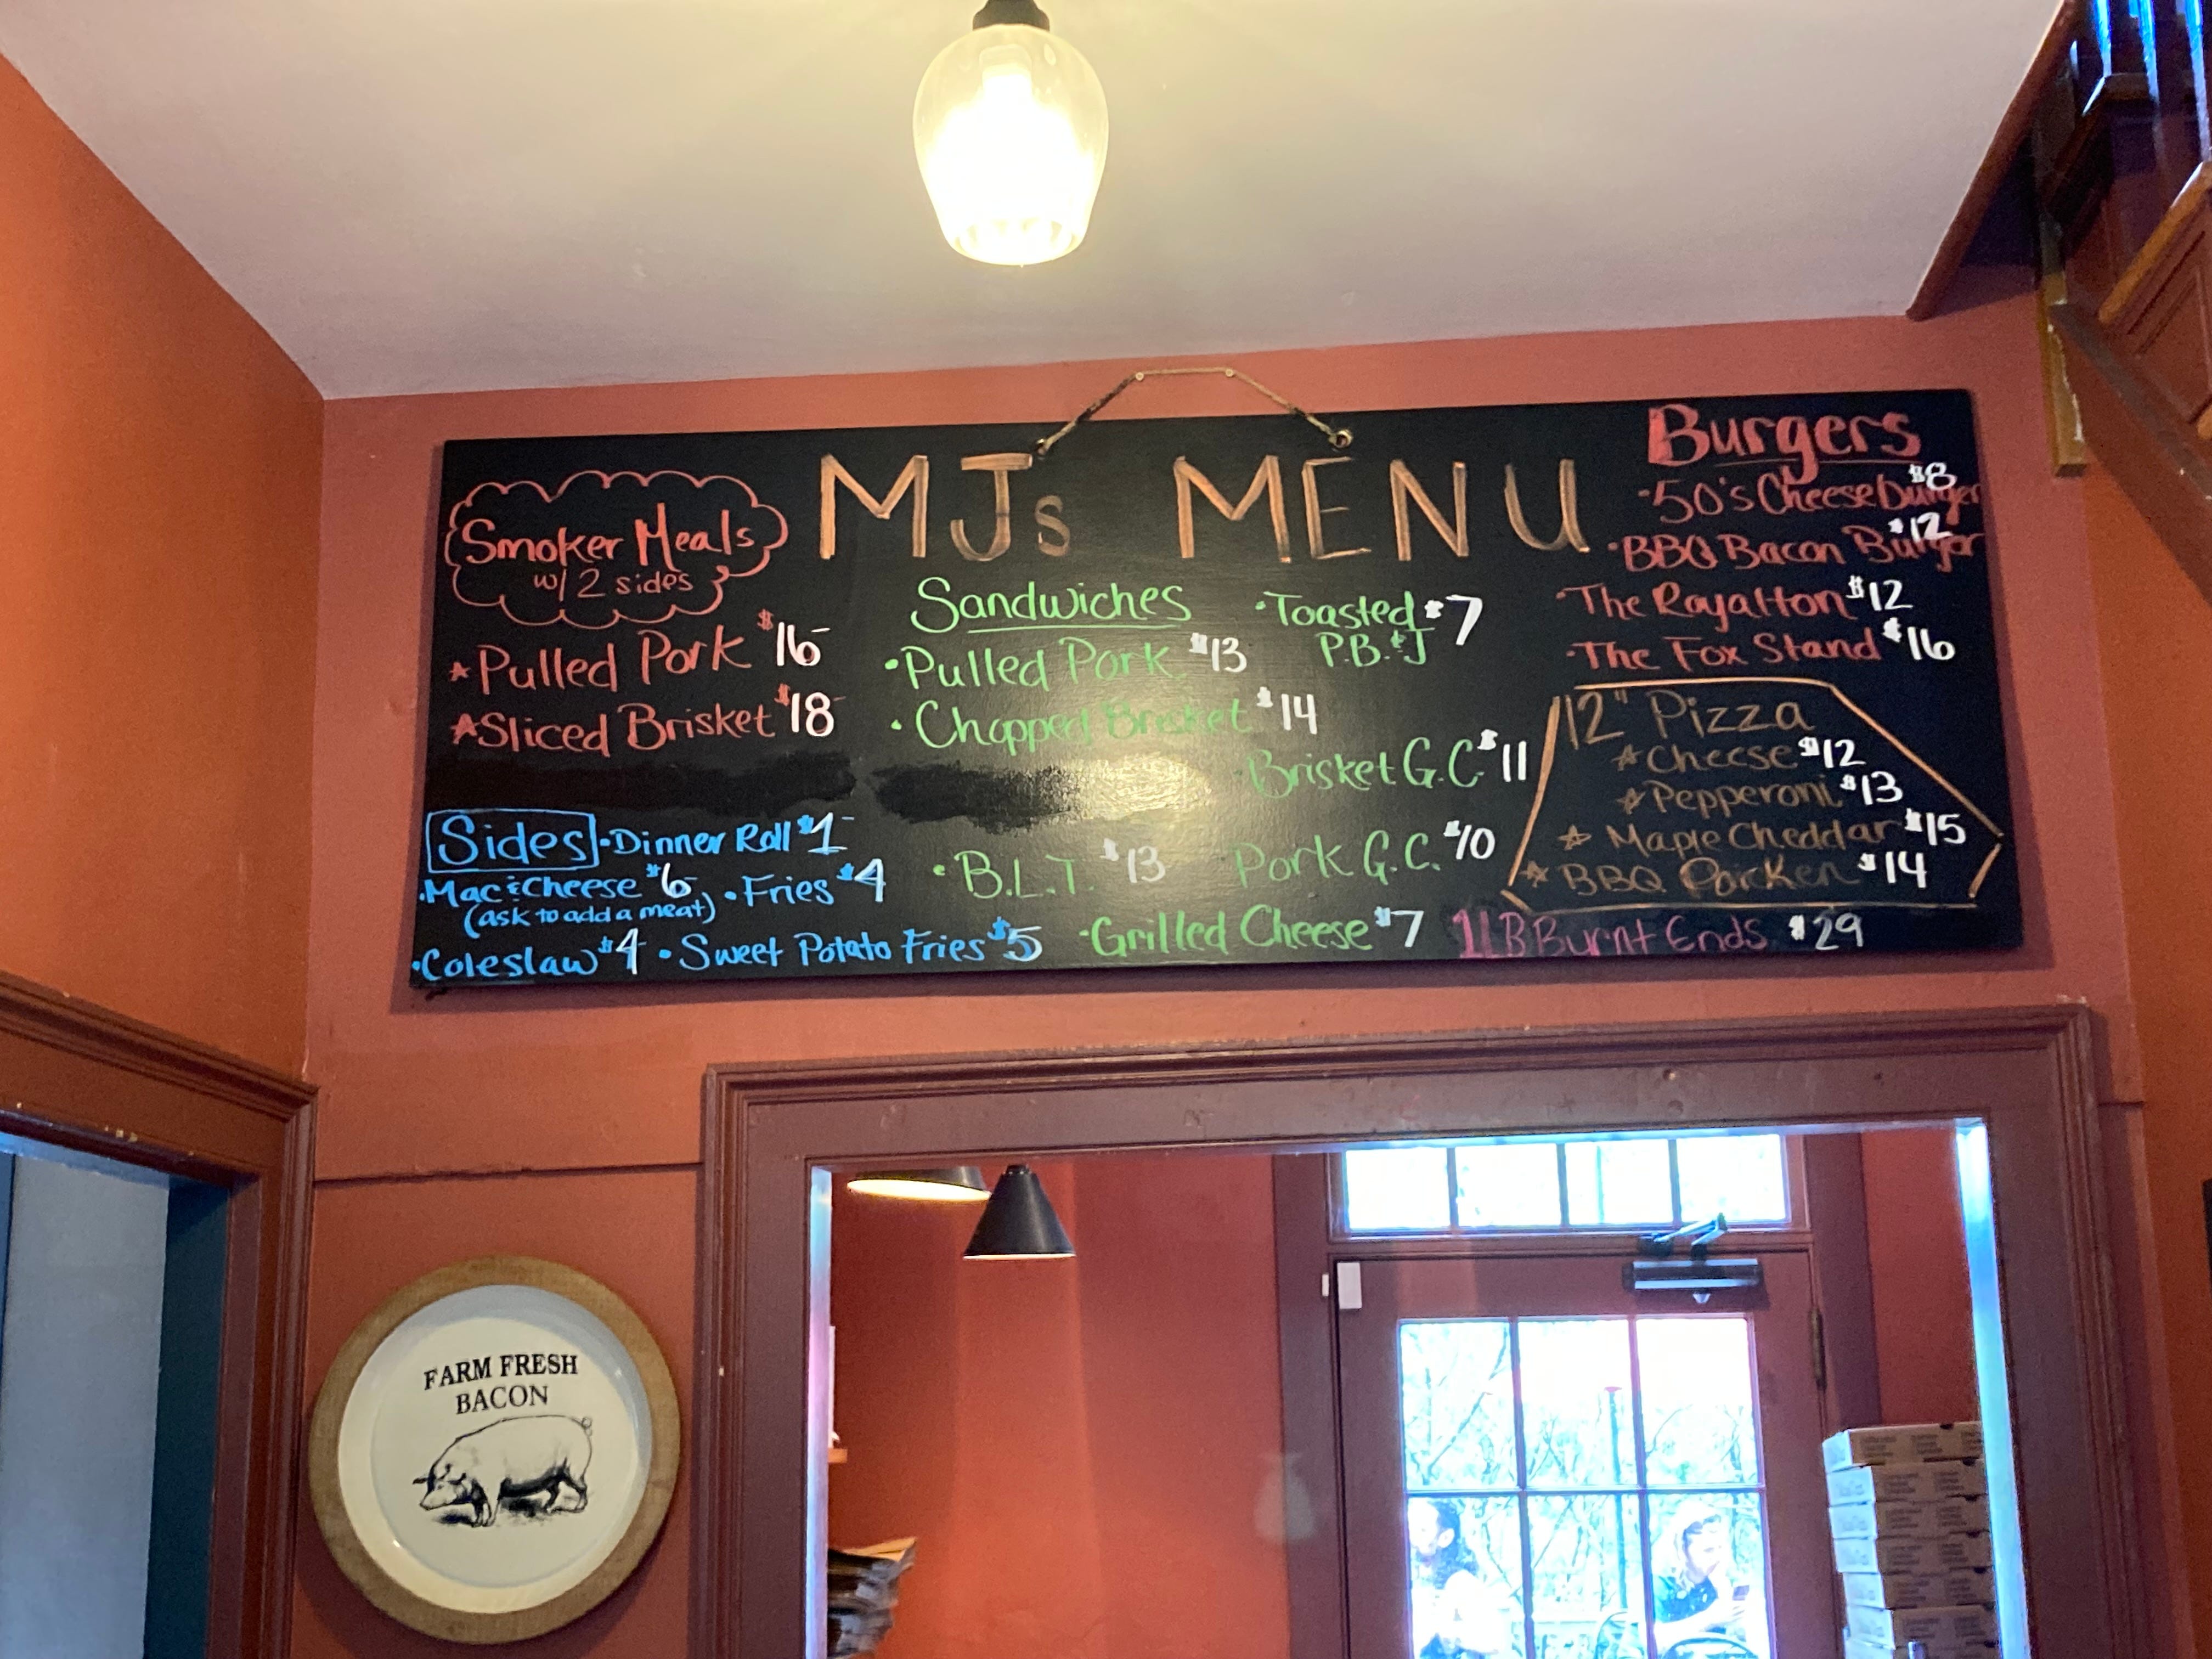 MJs MENU
Smoker Meals
w/ 2 sides
Pulled Pork $16
Sliced Brisket $18
Sides
Dinner Roll $1
Mac & Cheese $6
(ask to add a meat)
Fries $4
Coleslaw $4
Sweet Potato Fries $5
Sandwiches
Pulled Pork $13
Chopped Brisket $14
B.L.T. $13
Grilled Cheese $7
Toasted $7
P.B.&J
Brisket G.C $11
Pork G.C. $10
Burgers
50's Cheeseburger $8
BBQ Bacon Burger $12
The Royalton $12
The Fox Stand $16
12" Pizza
Cheese $12
Pepperoni $13
Maple Cheddar $15
BBQ Porcken $14
1LB Burnt Ends $29
FARM FRESH
BACON